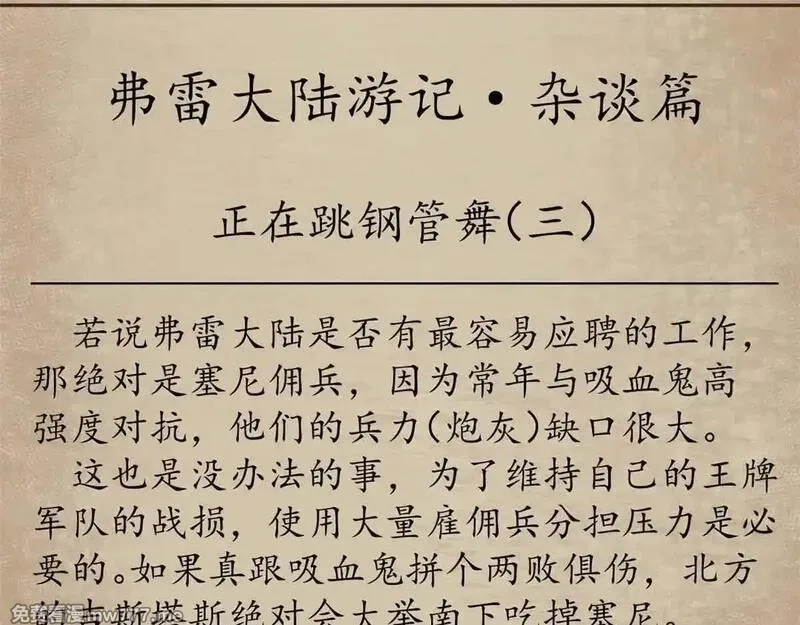 弗雷大陆游记·杂谈篇
正在跳钢管舞(三)
若说弗雷大陆是否有最容易应聘的工作，
那绝对是塞尼佣兵，因为常年与吸血鬼高
强度对抗，他们的兵力(炮灰)缺口很大。
这也是没办法的事，为了维持自己的王牌
军队的战损，使用大量雇佣兵分担压力是必
要的。如果真跟吸血鬼拼个两败俱伤，北方
的古斯塔斯绝对会大举南下吃掉塞尼。
免费看漫mwf77.ms